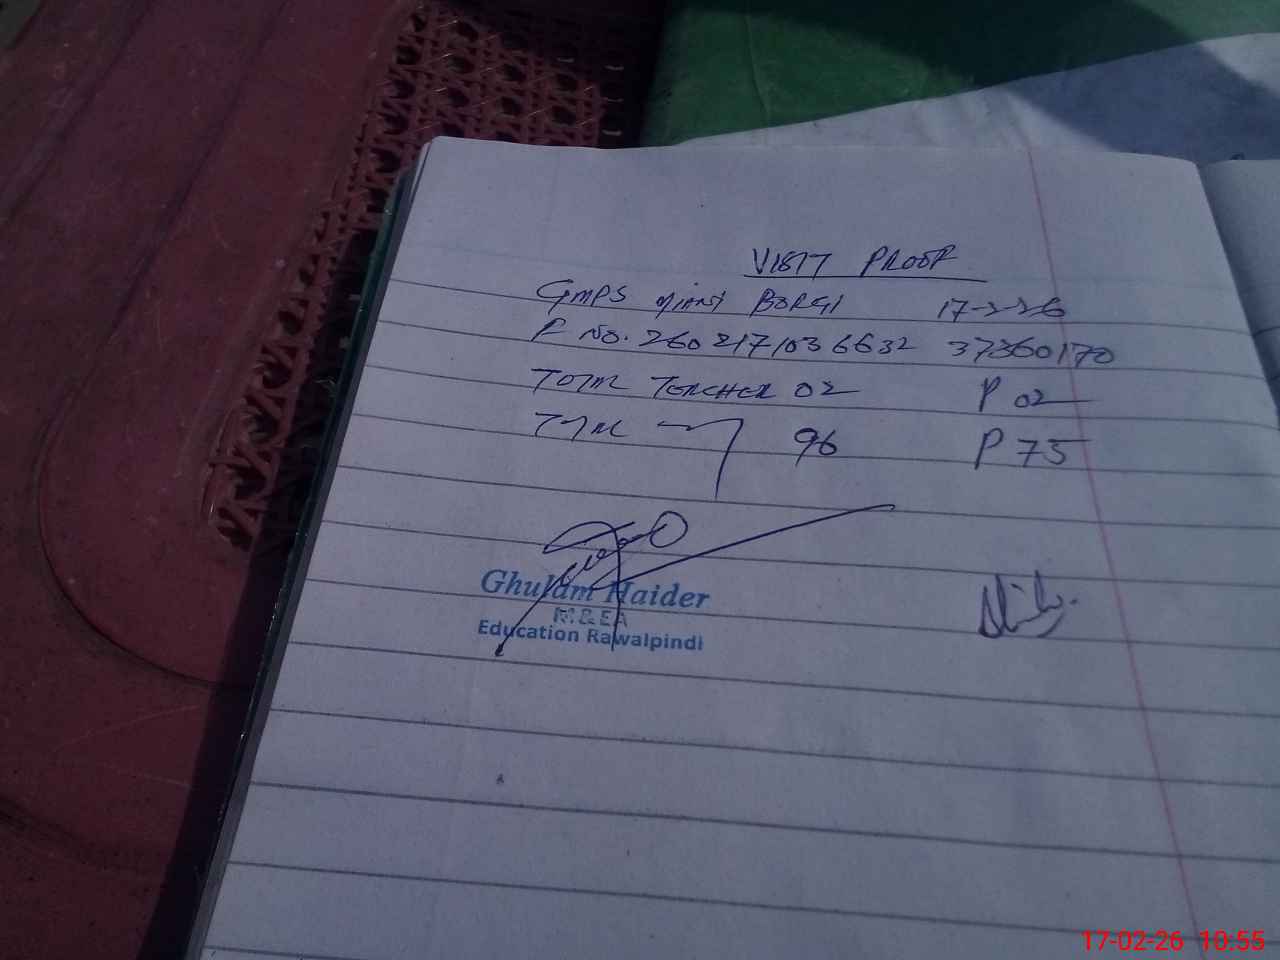 VISIT PROOF
GMPS Miani BORGI 17-2-26
P No. 2602171036632 37360170
TOTAL TEACHER 02 P 02
TOTAL 96 P 75
Ghulam Haider
M & EA
Education Rawalpindi
17-02-26 10:55